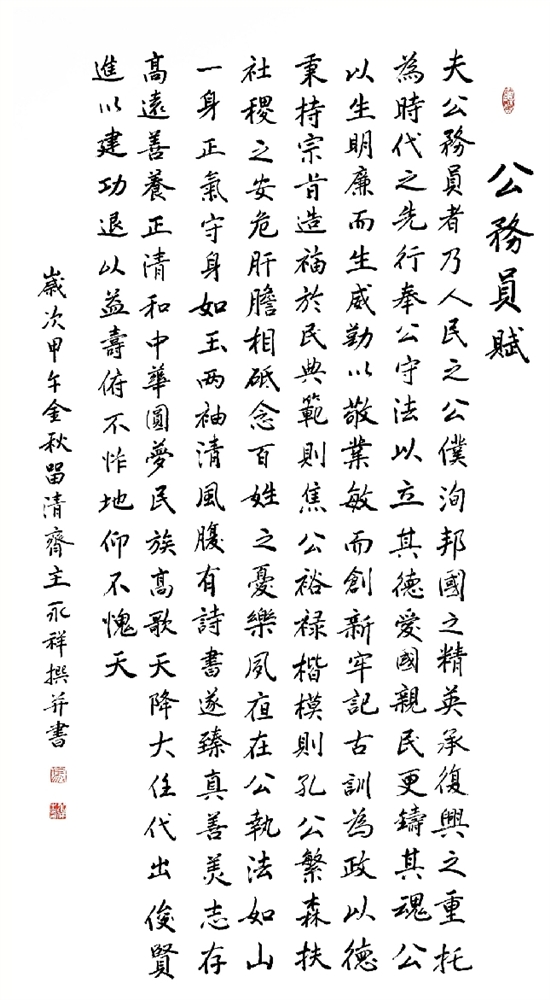 公務員賦
夫公務員者乃人民之公僕洵邦國之精英承復興之重托
為時代之先行奉公守法以立其德愛國親民更鑄其魂公
以生明廉而生威勤以敬業敏而創新牢記古訓為政以德
秉持宗旨造福於民典範則焦公裕禄楷模則孔公繁森扶
社稷之安危肝膽相砥念百姓之憂樂夙夜在公執法如山
一身正氣守身如玉两袖清風腹有詩書遂臻真善美志存
高遠善養正清和中華圓夢民族高歌天降大任代出俊賢
進以建功退以益壽俯不怍地仰不愧天
歲次甲午金秋留清齋主永祥撰并書